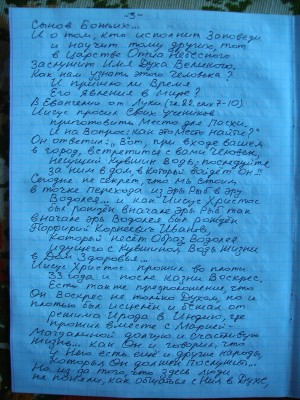 -3-
Сынов Божьих...
И о том, кто исполнит Заповеди
и научит тому других, тот
в Царство Отца Небесного
Заслужит Имя Духа Великого.
Как нам узнать этого Человека?
И пришло ли Время
Его явление в Мире?
В Евангелии от Луки (гл.22. стих 7-10)
Иисус просил Своих учеников
приготовить Место для Пасхи.
И на Вопрос: как это Место найти?"
Он ответил: "Вот, при входе вашем
в город, встретится с вами Человек,
несущий Кувшин Воды, последуйте
за ним в дом, в который войдёт он!!
Сегодня не секрет, что мы стоим
в точке перехода из эры Рыб в Эру
Водолея... и как Иисус Христос
был рождён вначале Эры Рыб так
вначале Эры Водолея был рождён
Порфирий Корнеевич Иванов,
Который несёт Образ Водолея
идущего с Кувшином Воды Жизни
в Дом Здоровья...
Иисус Христос прожил во плоти
33 года и после казни Воскрес,
Есть также предположение, что
Он Воскрес не только Духом, но и
плотью был исцелён и бежал от
режима Ирода в Индию, где
прожил вместе с Марией
Магдалиной долгую и счастливую
Жизнь... как Он и говорил, что
у Него есть ещё и другие народы,
которым Он должен послужить...
Но из-за того, что здесь люди
не поняли, как общаться с Ним в Духе,